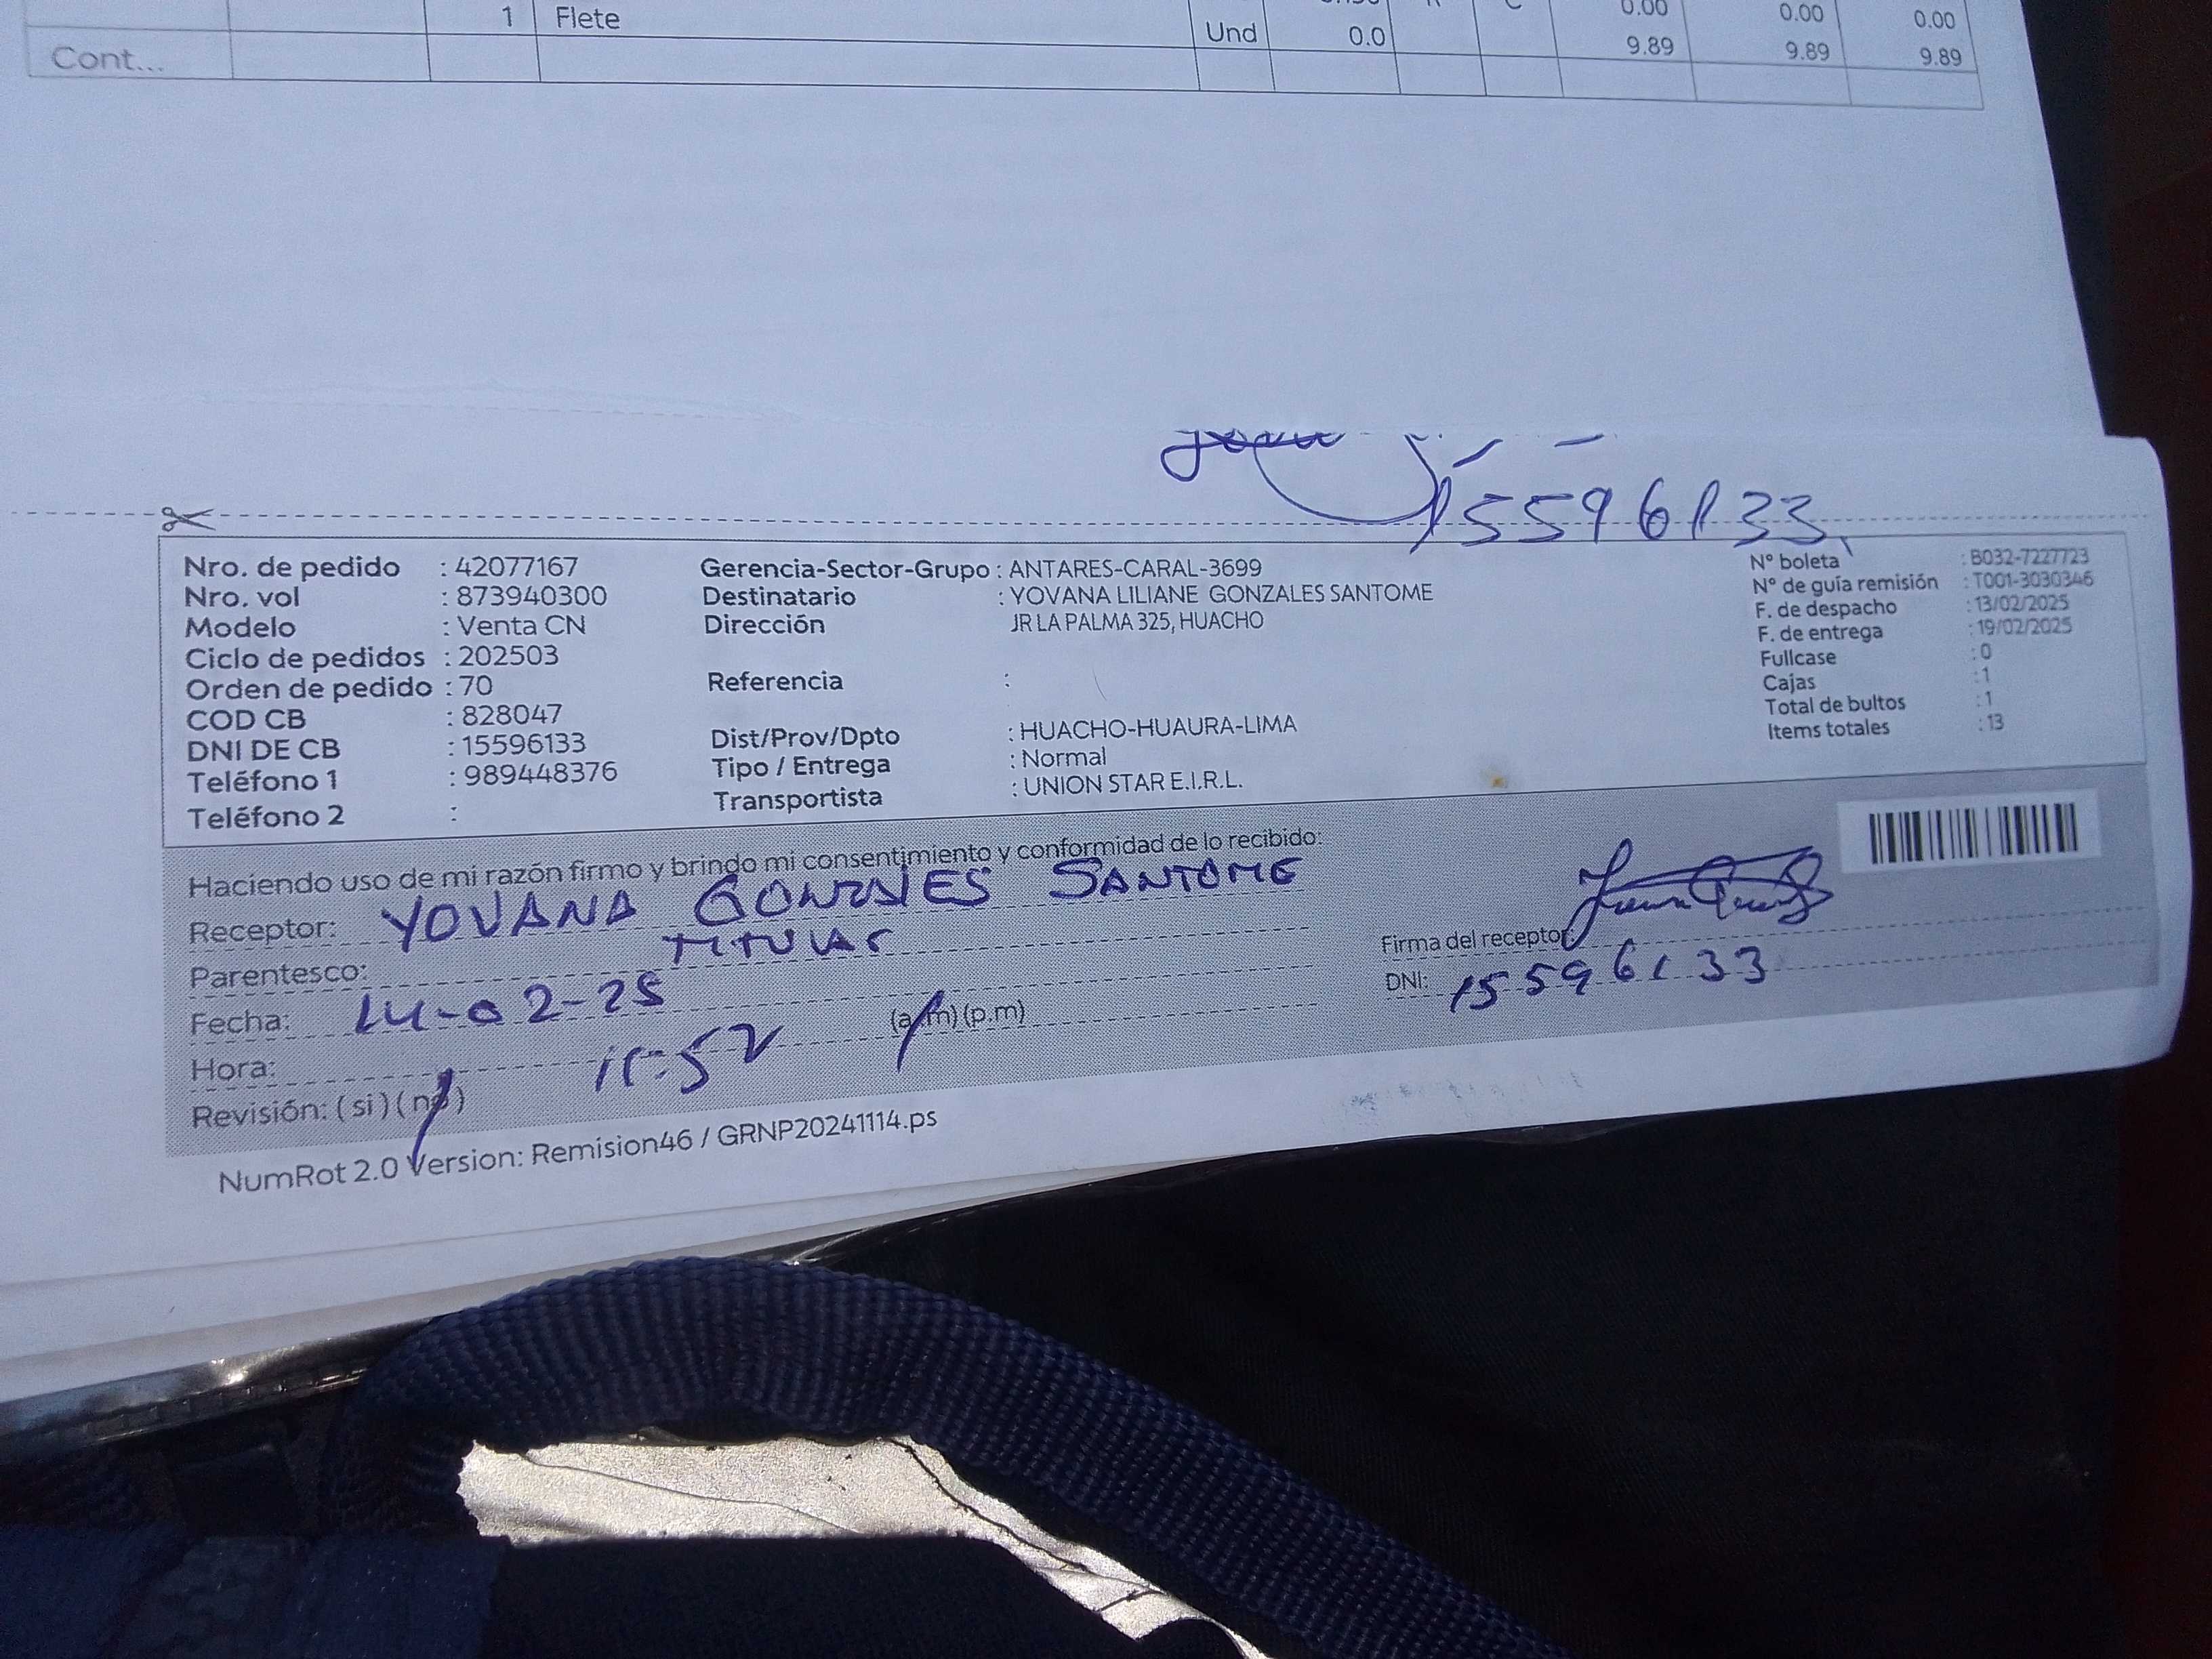 1 Flete Und 0.0 0.00 0.00 0.00
Cont... 9.89 9.89 9.89
15596133
Nro. de pedido : 42077167
Nro. vol : 873940300
Modelo : Venta CN
Ciclo de pedidos : 202503
Orden de pedido : 70
COD CB : 828047
DNI DE CB : 15596133
Teléfono 1 : 989448376
Teléfono 2 :
Gerencia-Sector-Grupo : ANTARES-CARAL-3699
Destinatario : YOVANA LILIANE GONZALES SANTOME
Dirección JR LA PALMA 325, HUACHO
Referencia :
Dist/Prov/Dpto : HUACHO-HUAURA-LIMA
Tipo / Entrega : Normal
Transportista : UNION STAR E.I.R.L.
N° boleta : B032-7227723
N° de guía remisión : T001-3030346
F. de despacho : 13/02/2025
F. de entrega : 19/02/2025
Fullcase : 0
Cajas : 1
Total de bultos : 1
Items totales : 13
Haciendo uso de mi razón firmo y brindo mi consentimiento y conformidad de lo recibido:
Receptor: YOVANA GONZALES SANTOME
Parentesco: TITULAR
Fecha: 14-02-25
Hora: 11:52 (a.m) (p.m)
Revisión: (si) (no)
Firma del receptor:
DNI: 15596133
NumRot 2.0 Version: Remision46 / GRNP20241114.ps